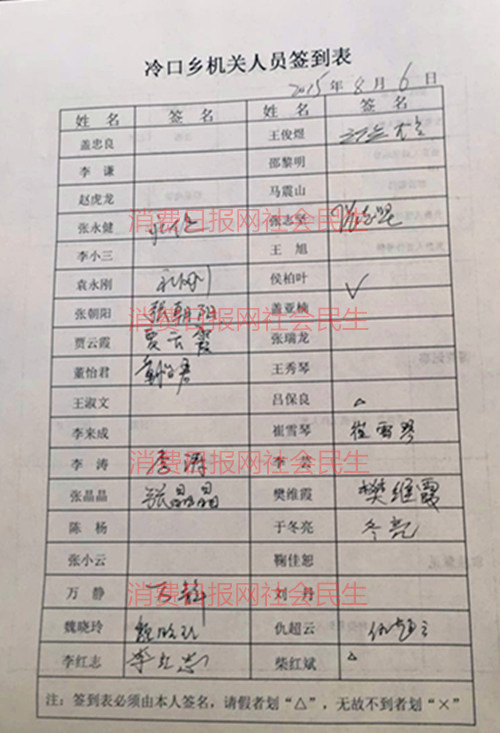 冷口乡机关人员签到表
2015年8月6日
姓名 签名 姓名 签名
盖忠良 王俊煜
李谦 邵黎明
赵虎龙 马震山
张永健 张志坚
消费日报网社会民生
李小三 王旭
袁永刚 侯柏叶 ✓
张朝阳 张朝阳 盖亚楠
消费日报网社会民生
贾云霞 贾云霞 张瑞龙
董怡君 董怡君 王秀琴
王淑文 吕保良 △
李来成 崔雪琴 崔雪琴
李涛 李涛 李芸
消费日报网社会民生
张晶晶 张晶晶 樊维霞 樊维霞
陈杨 于冬亮 冬亮
张小云 鞠佳恕
万静 万静 刘丹
消费日报网社会民生
魏晓玲 魏晓玲 仇超云 仇超云
李红志 李红志 柴红斌 △
注：签到表必须由本人签名，请假者划“△”，无故不到者划“×”